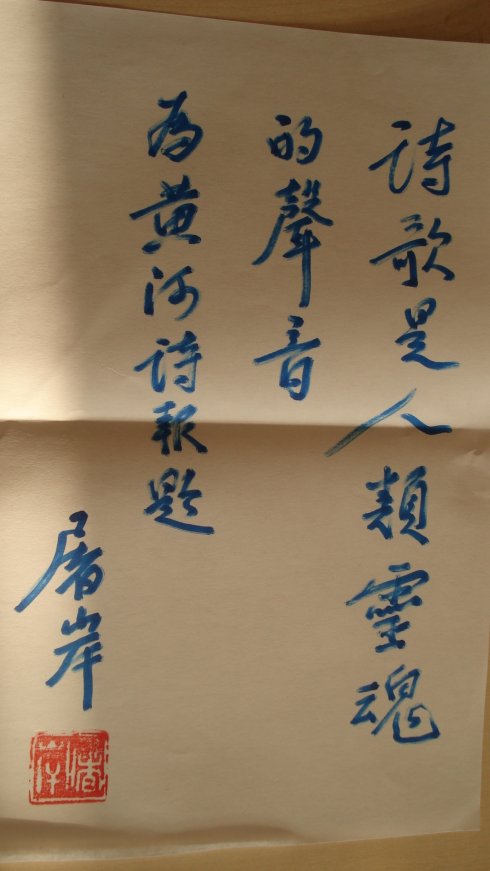 詩歌是人類靈魂
的聲音
為黄河詩報題
屠岸
屠岸